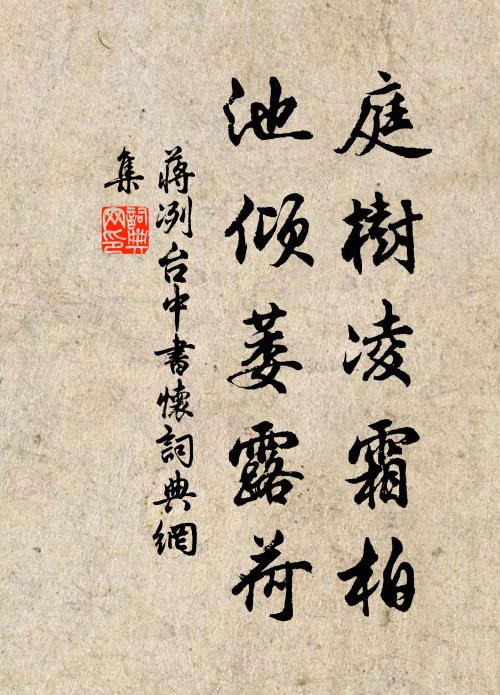 庭樹凌霜柏
池傾萎露荷
蔣冽台中書懷詞典網
集
詞典
网印